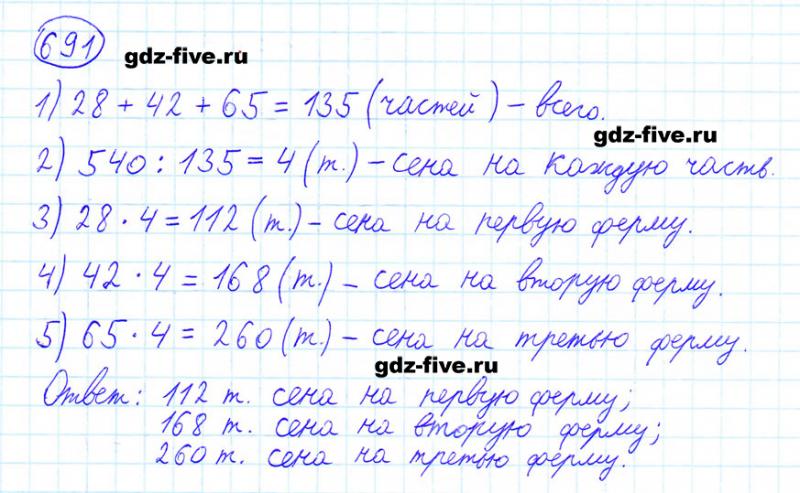 691
gdz-five.ru
1) 28 + 42 + 65 = 135 (частей) - всего.
gdz-five.ru
2) 540 : 135 = 4 (т.) - сена на каждую часть.
3) 28 · 4 = 112 (т.) - сена на первую ферму.
4) 42 · 4 = 168 (т.) - сена на вторую ферму.
5) 65 · 4 = 260 (т.) - сена на третью ферму.
gdz-five.ru
Ответ: 112 т. сена на первую ферму;
168 т. сена на вторую ферму;
260 т. сена на третью ферму.